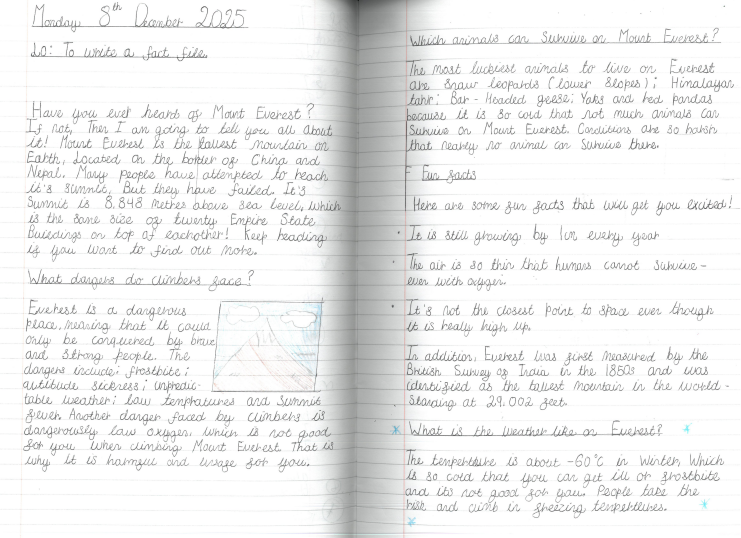 Monday, 8th December 2025
LO: To write a fact file.
Have you ever heard of Mount Everest?
If not, Then I am going to tell you all about
it! Mount Everest is the tallest mountain on
Earth, Located on the border of China and
Nepal. Many people have attempted to reach
it's summit, But they have failed. It's
Summit is 8,848 metres above sea level, which
is the same size of twenty Empire State
Buildings on top of eachother! Keep reading
if you want to find out more.
What dangers do climbers face?
Everest is a dangerous
place, meaning that it could
only be conquered by brave
and strong people. The
dangers include: frostbite;
autitude sickness; unpredic-
table weather; low tempratures and Summit
fever. Another danger faced by climbers is
dangerously low oxygen, which is not good
for you when climbing Mount Everest. That is
why it is harmful and unsafe for you.
Which animals can survive on Mount Everest?
The most luckiest animals to live on Everest
are snow leopards (lower slopes); Himalayan
tahr; Bar-Headed geese; Yaks and red pandas
because it is so cold that not much animals can
survive on Mount Everest. Conditions are so harsh
that nearly no animal can survive there.
F Fun facts
Here are some fun facts that will get you excited!
• It is still growing by 1cm every year
• The air is so thin that humans cannot survive -
even with oxygen.
• It's not the closest point to space even though
it is really high up.
In addition, Everest was first measured by the
British Survey of India in the 1850s and was
identified as the tallest mountain in the world -
Standing at 29.002 feet.
What is the weather like on Everest?
The temperture is about -60°C in Winter, Which
is so cold that you can get ill or frostbite
and its not good for you. People take the
risk and climb in freezing tempertures.